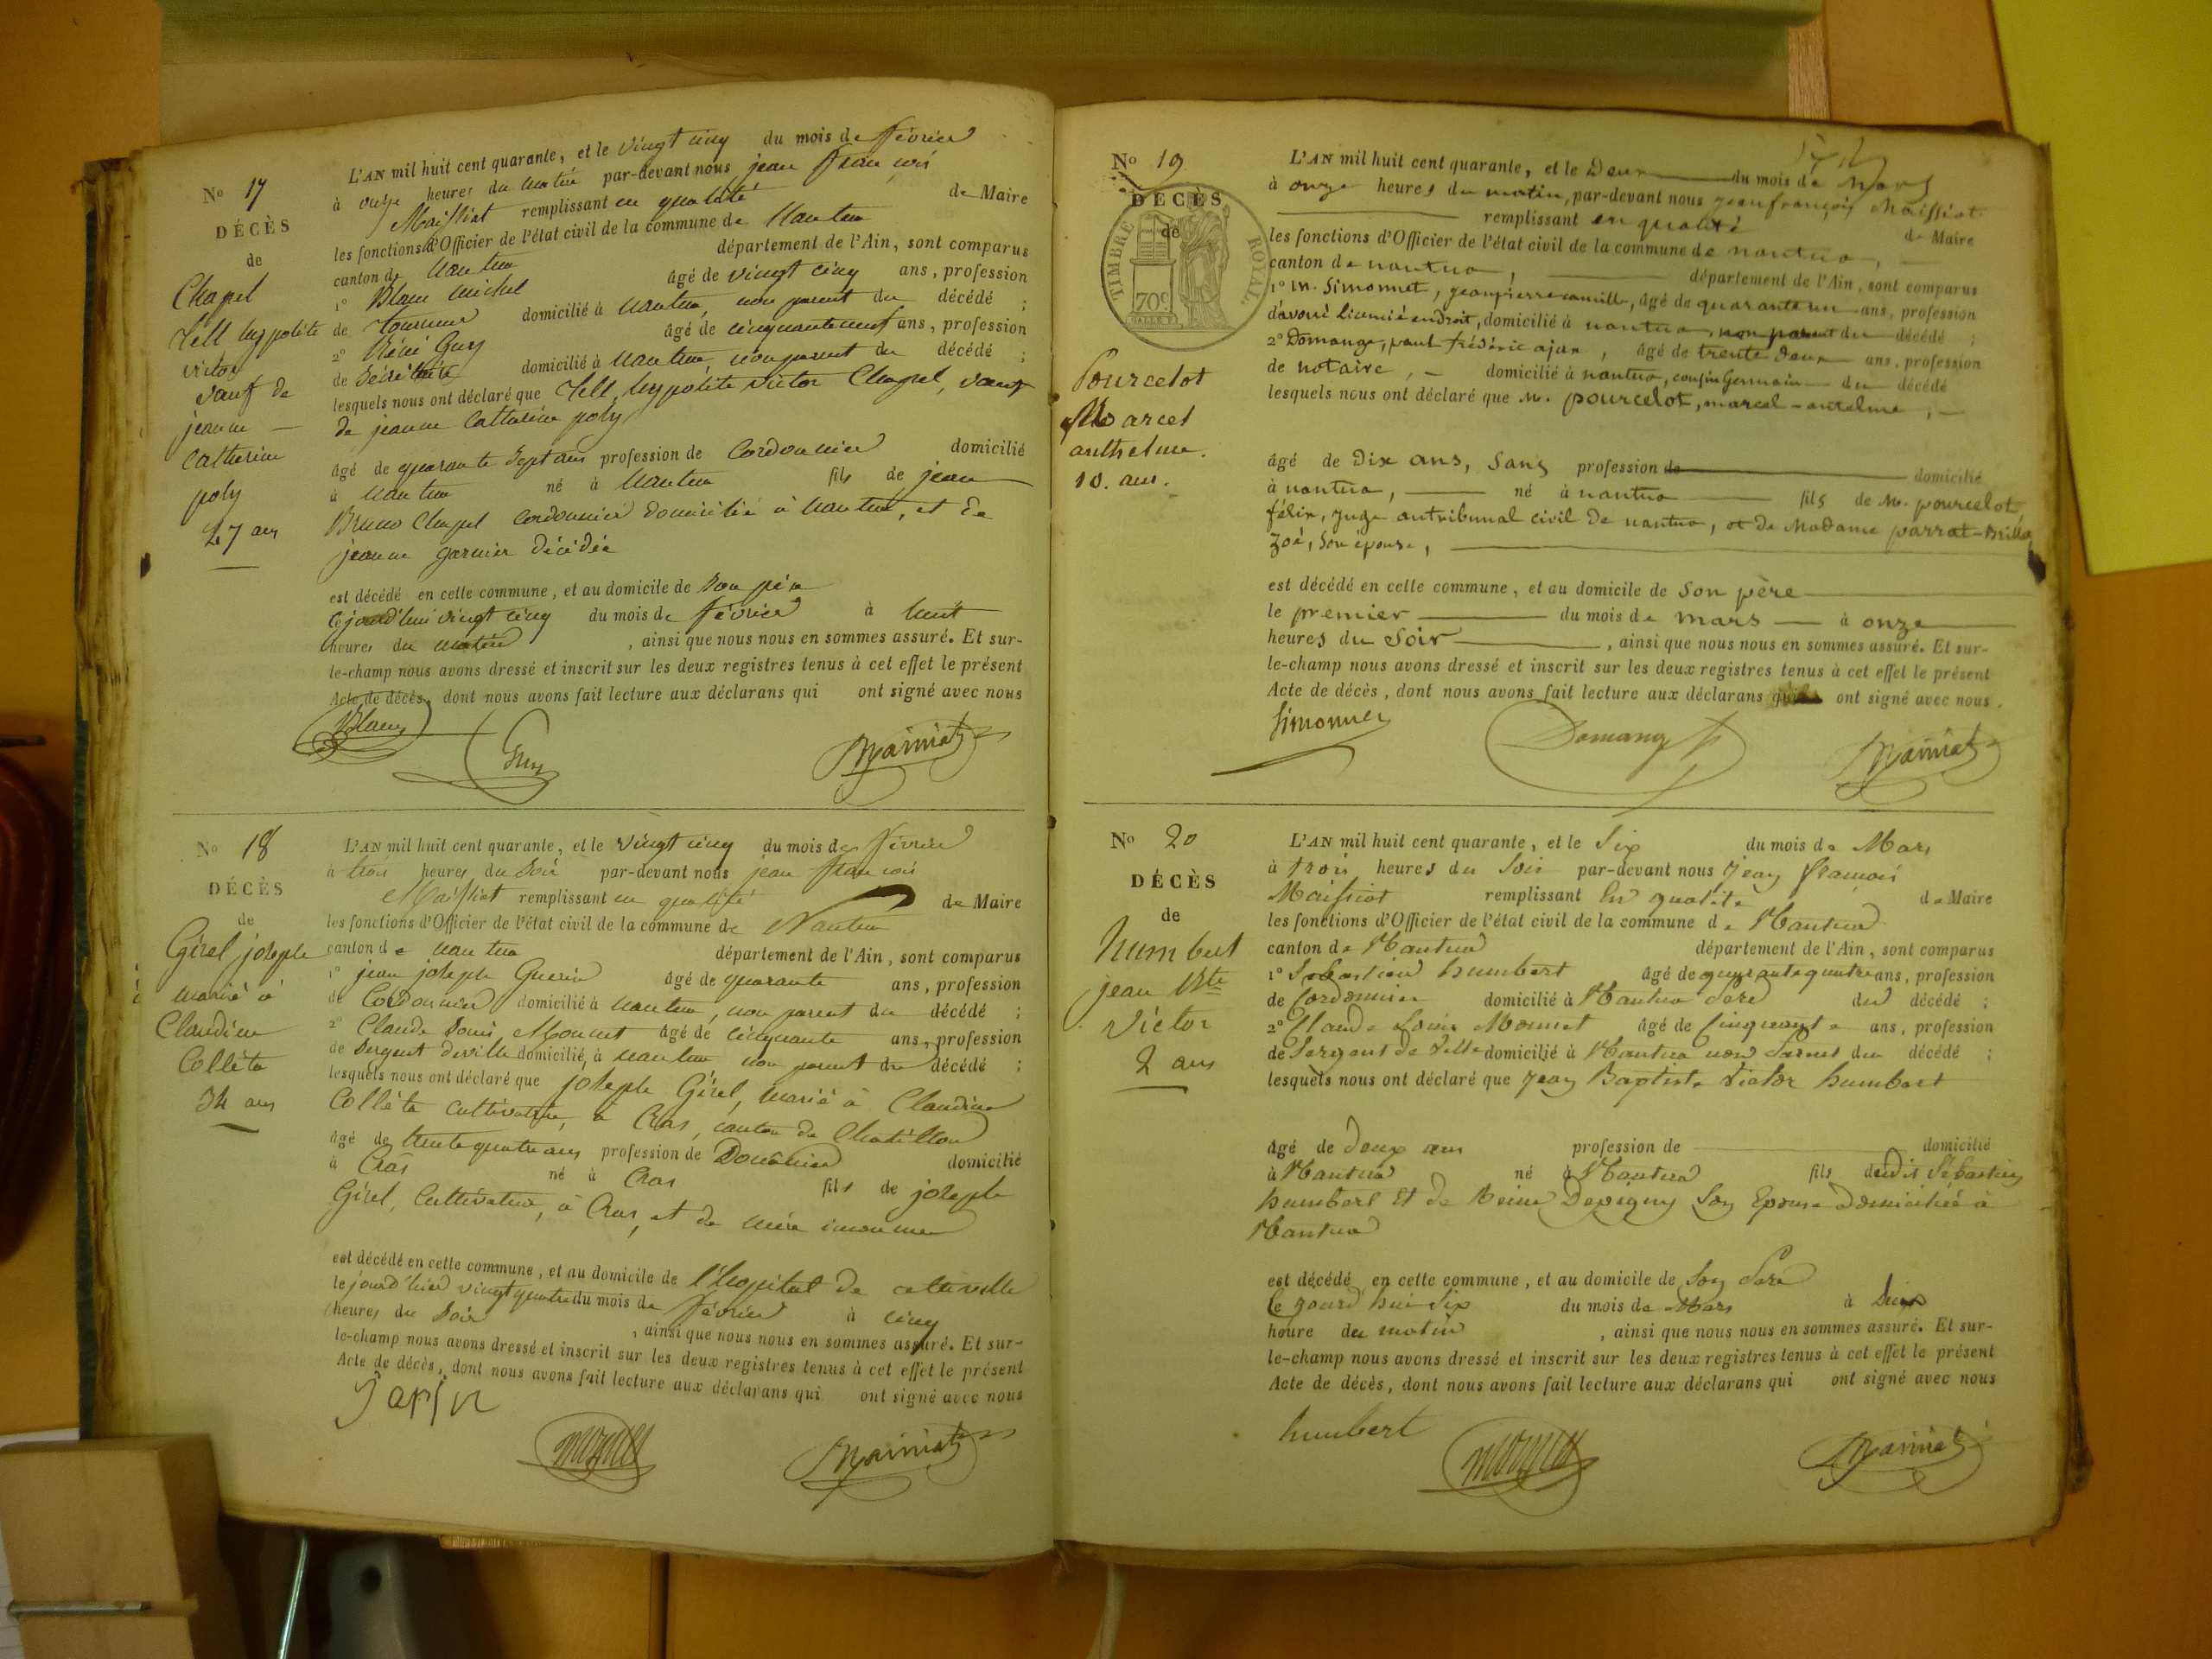 No 17
DÉCÈS
de
Chapel
Tell hyppolite
victor
vauf de
jeanne —
Catherine
poly
47 ans
L'AN mil huit cent quarante, et le vingt cinq du mois de février
à onze heures du matin par-devant nous jean françois
Maissiat remplissant en qualité de Maire
les fonctions d'Officier de l'état civil de la commune de Nantua
canton de Nantua département de l'Ain, sont comparus
1° Blanc Michel âgé de vingt cinq ans, profession
de tourneur domicilié à Nantua, non parent du décédé ;
2° Réné Guy âgé de cinquanteneuf ans, profession
de Secrétaire domicilié à Nantua, non parent du décédé ;
lesquels nous ont déclaré que Tell, hyppolite victor Chapel, vauf
de jeanne Catherine poly
âgé de quarante Sept ans profession de Cordonnier domicilié
à Nantua né à Nantua fils de jean
Bruno Chapel cordonnier domicilié à Nantua, et de
jeanne garnier décédée
est décédé en cette commune, et au domicile de Son père
cejourd'hui vingt cinq du mois de février à huit
heures du matin , ainsi que nous nous en sommes assuré. Et sur-
le-champ nous avons dressé et inscrit sur les deux registres tenus à cet effet le présent
Acte de décès, dont nous avons fait lecture aux déclarans qui ont signé avec nous
Blanc
Guy
Maissiat
No 18
DÉCÈS
de
Girel joseph
marié à
Claudine
Colléta
34 ans
L'AN mil huit cent quarante, et le vingt cinq du mois de février
à trois heures du Soir par-devant nous jean françois
Maissiat remplissant en qualité de Maire
les fonctions d'Officier de l'état civil de la commune de Nantua
canton de nantua département de l'Ain, sont comparus
1° jean joseph Guerin âgé de quarante ans, profession
de Cordonnier domicilié à nantua, non parent du décédé ;
2° Claude Louis Monnet âgé de cinquante ans, profession
de Sergent deville domicilié à nantua non parent du décédé ;
lesquels nous ont déclaré que joseph Girel, marié à Claudine
Colléta cultivatrice, à Cras, canton de Chatillon
âgé de trente quatre ans profession de Douanier domicilié
à Cras né à Cras fils de joseph
Girel, Cultivateur, à Cras, et de mère inconnue
est décédé en cette commune, et au domicile de l'hopital de cette ville
le jourd'hier vingt quatre du mois de février à cinq
heures du Soir , ainsi que nous nous en sommes assuré. Et sur-
le-champ nous avons dressé et inscrit sur les deux registres tenus à cet effet le présent
Acte de décès, dont nous avons fait lecture aux déclarans qui ont signé avec nous
Maissiat
No 19
DÉCÈS
de
TIMBRE ROYAL
70c
Pourcelot
Marcel
anthelme.
10. ans.
L'AN mil huit cent quarante, et le Deux du mois de Mars
à onze heures du matin, par-devant nous jean françois Maissiat
remplissant en qualité de Maire
les fonctions d'Officier de l'état civil de la commune de nantua,
canton de nantua, département de l'Ain, sont comparus
1° M. Simonnet, jean pierre camille, âgé de quarante un ans, profession
d'avoué licencié en droit, domicilié à nantua, non parent du décédé ;
2° Domange, paul frédéric ajax, âgé de trente deux ans, profession
de notaire, — domicilié à nantua, cousin Germain du décédé
lesquels nous ont déclaré que M. pourcelot, marcel-antelme, —
âgé de Dix ans, Sans profession de domicilié
à nantua, né à nantua fils de M. pourcelot,
félix, juge au tribunal civil de nantua, et de Madame parrat-Brilla
zoé, son épouse,
est décédé en cette commune, et au domicile de Son père
le premier du mois de mars à onze
heures du Soir , ainsi que nous nous en sommes assuré. Et sur-
le-champ nous avons dressé et inscrit sur les deux registres tenus à cet effet le présent
Acte de décès, dont nous avons fait lecture aux déclarans qui ont signé avec nous.
Simonnet
Domange
Maissiat
No 20
DÉCÈS
de
humbert
jean Bte
Victor
2 ans
L'AN mil huit cent quarante, et le Six du mois de Mars
à trois heures du Soir par-devant nous jean françois
Maissiat remplissant En qualité de Maire
les fonctions d'Officier de l'état civil de la commune de Nantua
canton de Nantua département de l'Ain, sont comparus
1° Sebastien humbert âgé de quarante quatre ans, profession
de Cordonnier domicilié à Nantua Pere du décédé ;
2° Claude Louis Monnet âgé de Cinquante ans, profession
de Sergent de Ville domicilié à Nantua non Parent du décédé ;
lesquels nous ont déclaré que jean Baptiste Victor humbert
âgé de deux ans profession de domicilié
à Nantua né à Nantua fils dudit Sebastien
humbert Et de Reine Depigny Son Epouse Domiciliée à
Nantua
est décédé en cette commune, et au domicile de Son Pere
Ce jourd'hui Six du mois de Mars à Deux
heure du matin , ainsi que nous nous en sommes assuré. Et sur-
le-champ nous avons dressé et inscrit sur les deux registres tenus à cet effet le présent
Acte de décès, dont nous avons fait lecture aux déclarans qui ont signé avec nous
humbert
Maissiat